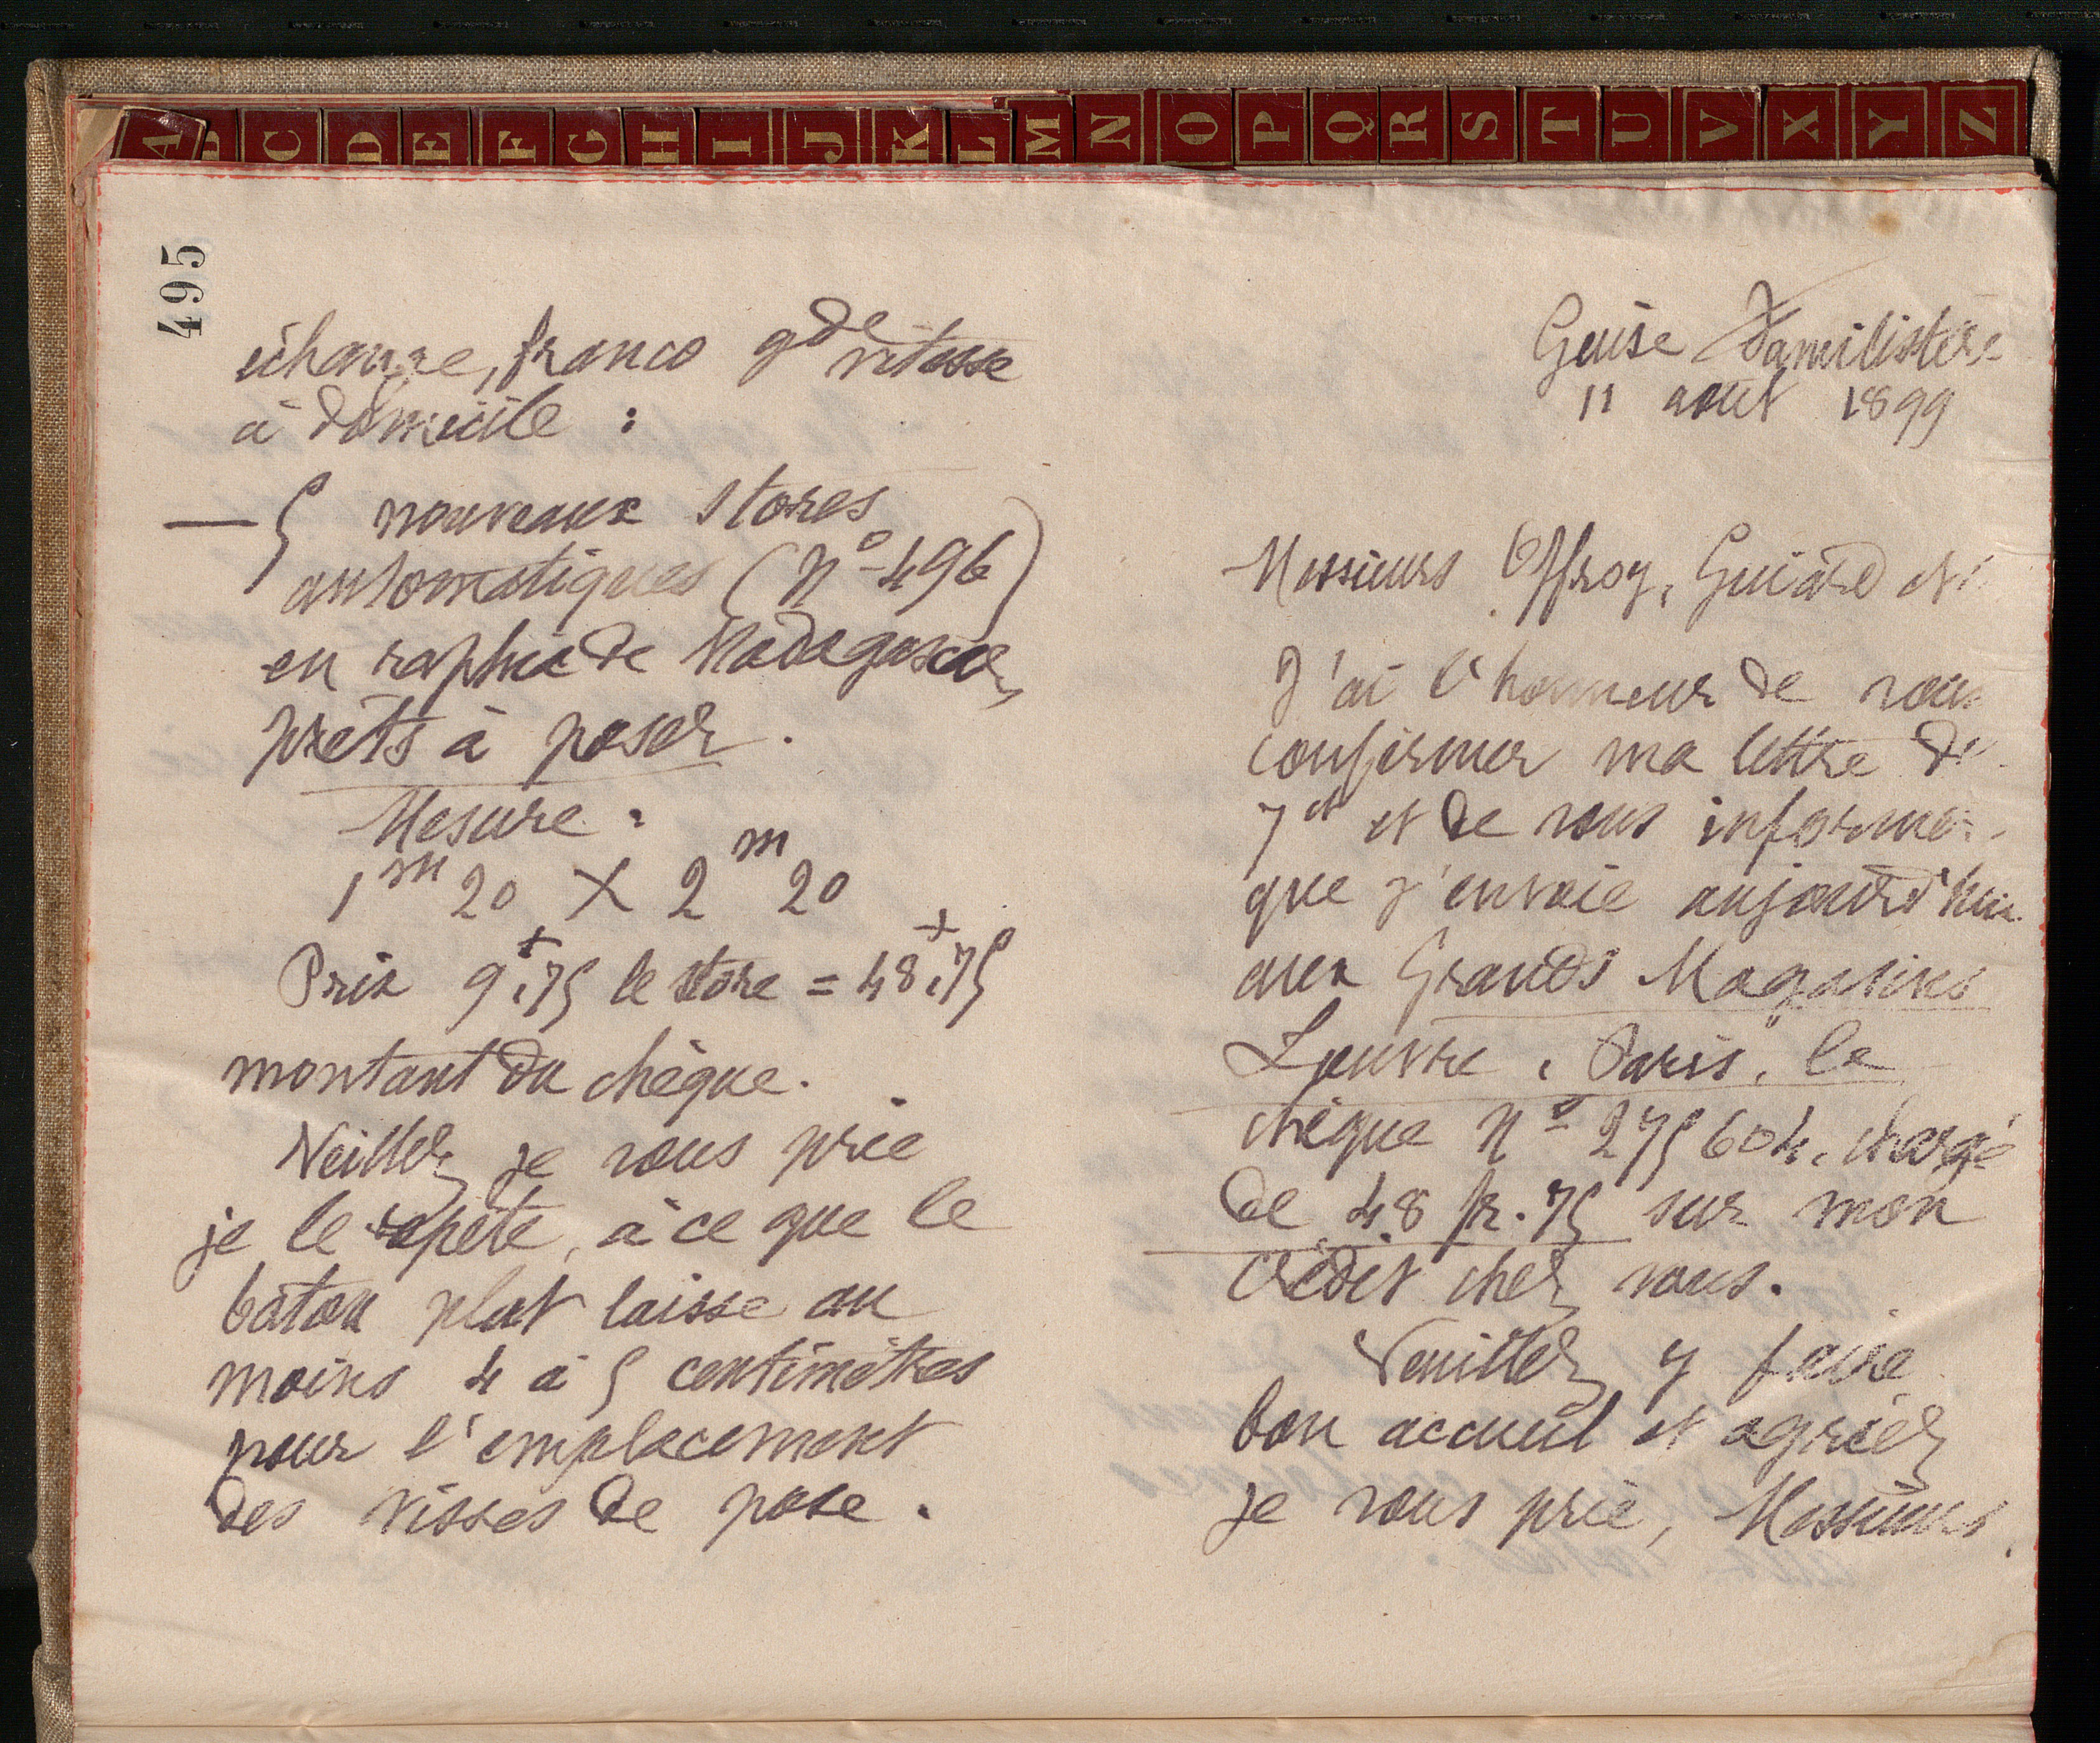 A B C D E F G H I J K L M N O P Q R S T U V X Y Z
495
échange, franco gde vitesse
à domicile :
— 5 nouveaux stores
automatiques (No 496)
en raphia de Madagascar,
prêts à poser.
Mesure :
1m 20 X 2m 20
Prix 9f.75 le store = 48f.75
montant du chèque.
Veillez je vous prie
je le répète, à ce que le
bâton plat laisse au
moins 4 à 5 centimètres
pour l'emplacement
des visses de pose.
Guise Familistère
11 août 1899
Messieurs Offroy, Guiard et
J'ai l'honneur de vous
confirmer ma lettre du
7 et et de vous informer
que j'envoie aujourd'hui
aux Grands Magasins
Louvre, Paris, le
chèque No 275604, chargé
de 48 fr. 75 sur mon
crédit chez vous.
Veuillez y faire
bon accueil et agréez
je vous prie, Messieurs,